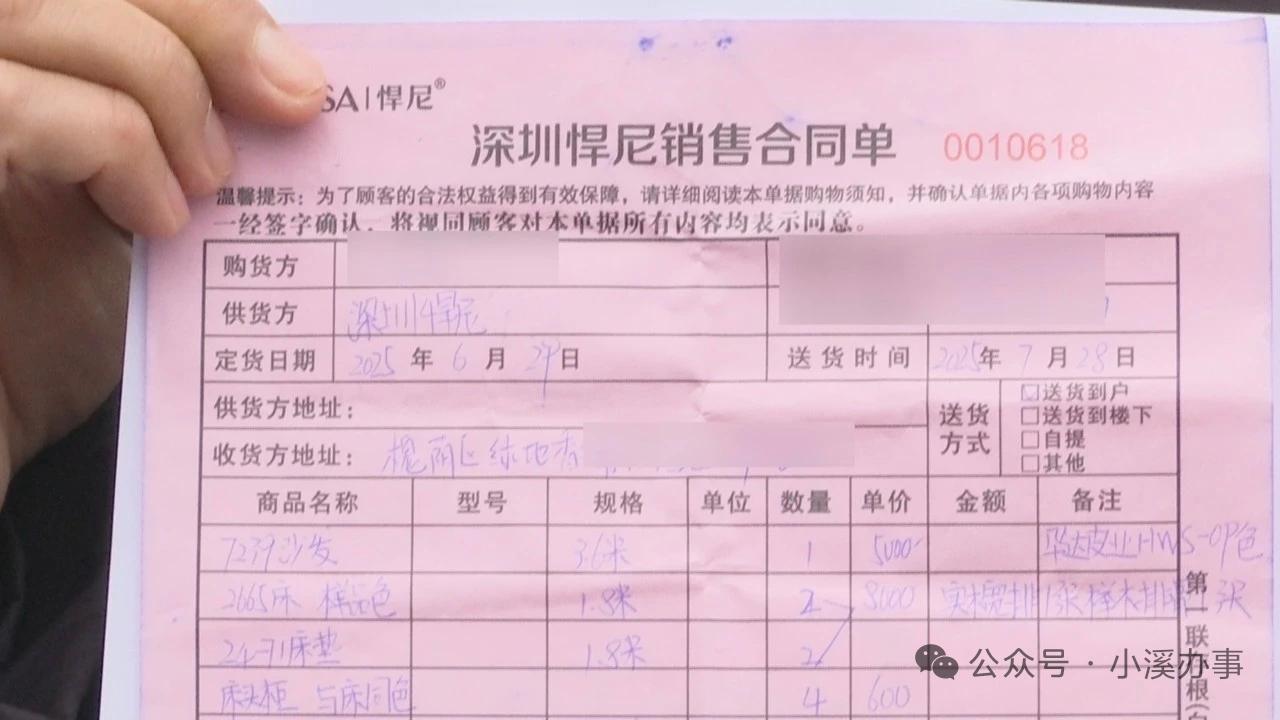 SA|悍尼®
深圳悍尼销售合同单 0010618
温馨提示：为了顾客的合法权益得到有效保障，请详细阅读本单据购物须知，并确认单据内各项购物内容
一经签字确认，将视同顾客对本单据所有内容均表示同意。
购货方
供货方 深圳悍尼
定货日期 2025年6月29日 送货时间 2025年7月28日
供货方地址：
送货方式 送货到户
送货到楼下
自提
其他
收货方地址：槐荫区绿地香
商品名称 型号 规格 单位 数量 单价 金额 备注
7239沙发 3.6米 1 5000
2665床 样品色 1.8米 2 8000
24-71床垫 1.8米 2
床头柜 与床同色 4 600
第一联
根
公众号·小溪办事